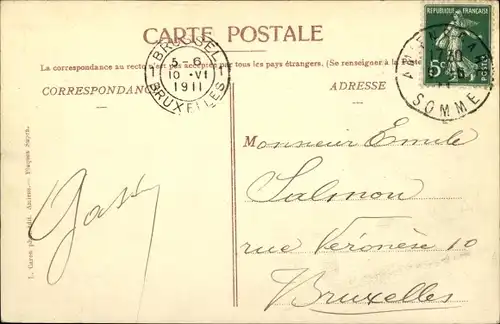 CARTE POSTALE
La correspondance au recto n'est pas acceptée par tous les pays étrangers. (Se renseigner à la Poste
CORRESPONDANCE
ADRESSE
BRUSSEL
5-6
10 -VI
1911
BRUXELLES
REPUBLIQUE FRANÇAISE
5c
POSTES
SOMME
Monsieur Emile
Salmon
rue Véronèse 10
Bruxelles
L. Caron phot. édit. Amiens. — Plaques Jugra.